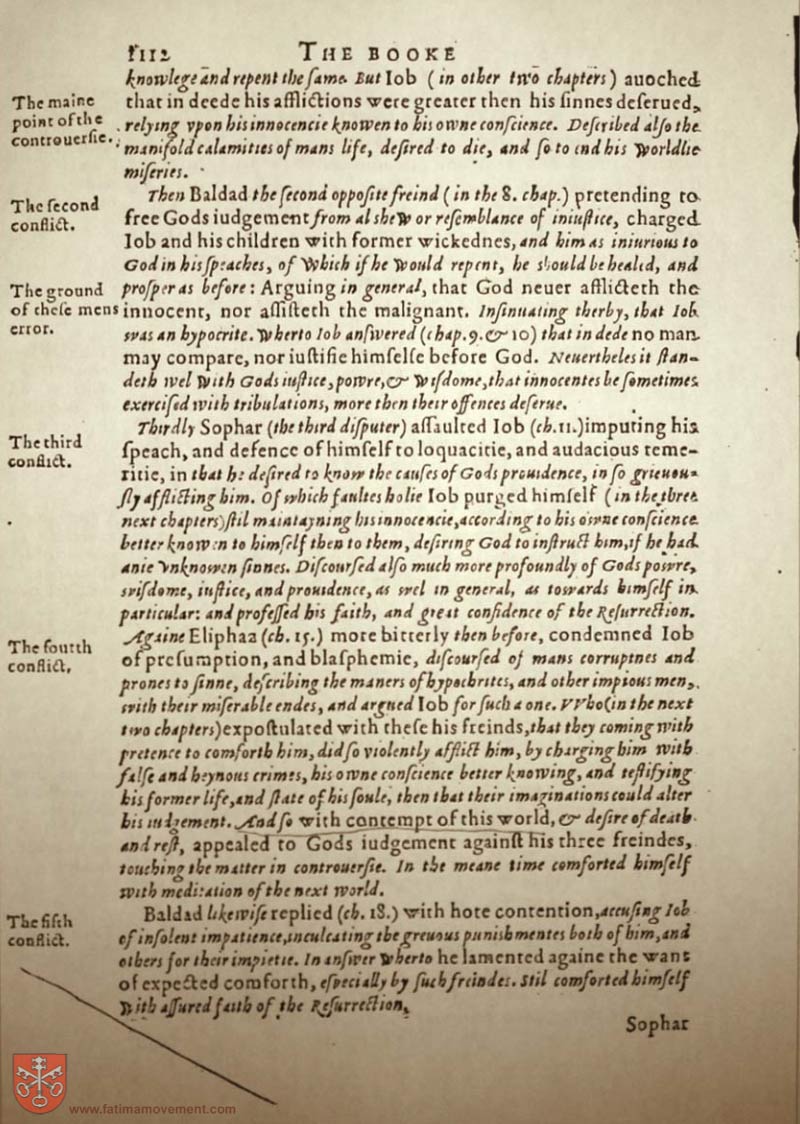 1112
THE BOOKE
The maine
point of the
controuerſie.
knowlege and repent the ſame. But Iob (in other two chapters) auoched
that in deede his afflictions were greater then his ſinnes deſerued,
relying vpon his innocencie knowen to his owne conſcience. Deſcribed alſo the
manifold calamities of mans life, deſired to die, and ſo to end his worldlie
miſeries.
The ſecond
conflict.
Then Baldad the ſecond oppoſite freind (in the 8. chap.) pretending to
free Gods iudgement from al shew or reſemblance of iniuſtice, charged
Iob and his children with former wickednes, and him as iniurious to
God in his ſpeaches, of which if he would repent, he should be healed, and
The ground
of theſe mens
error.
proſper as before: Arguing in general, that God neuer afflicteth the
innocent, nor aſſiſteth the malignant. Inſinuating therby, that Iob
was an hypocrite. Wherto Iob anſwered (chap. 9. & 10) that in dede no man
may compare, nor iuſtifie himſelfe before God. Neuertheles it ſtan-
deth wel with Gods iuſtice, powre, & wiſdome, that innocentes be ſometimes
exerciſed with tribulations, more then their offences deſerue.
The third
conflict.
Thirdly Sophar (the third diſputer) aſſaulted Iob (ch. 11.) imputing his
ſpeach, and defence of himſelf to loquacitie, and audacious teme-
ritie, in that he deſired to know the cauſes of Gods prouidence, in ſo grieuou-
ſly afflicting him. Of which faultes holie Iob purged himſelf (in the three
next chapters) ſtil maintayning his innocencie, according to his owne conſcience
better knowen to himſelf then to them, deſiring God to inſtruct him, if he had
anie vnknowen ſinnes. Diſcourſed alſo much more profoundly of Gods powre,
wiſdome, iuſtice, and prouidence, as wel in general, as towards himſelf in
particular: and profeſſed his faith, and great confidence of the Reſurrection.
The fourth
conflict,
Againe Eliphaz (ch. 15.) more bitterly then before, condemned Iob
of preſumption, and blaſphemie, diſcourſed of mans corruptnes and
prones to ſinne, deſcribing the maners of hypochrites, and other impious men,
with their miſerable endes, and argued Iob for ſuch a one. VVho (in the next
two chapters) expoſtulated with theſe his freinds, that they coming with
pretence to comforth him, did ſo violently afflict him, by charging him with
falſe and heynous crimes, his owne conſcience better knowing, and teſtifying
his former life, and ſtate of his ſoule, then that their imaginations could alter
his iudgement. And ſo with contempt of this world, & deſire of death
and reſt, appealed to Gods iudgement againſt his three freindes,
touching the matter in controuerſie. In the meane time comforted himſelf
with meditation of the next world.
The fifth
conflict.
Baldad likewiſe replied (ch. 18.) with hote contention, accuſing Iob
of inſolent impatience, inculcating the greuous punishmentes both of him, and
others for their impietie. In anſwer wherto he lamented againe the want
of expected comforth, eſpecially by ſuch freindes. Stil comforted himſelf
with aſſured faith of the Reſurrection,
Sophar
www.fatimamovement.com